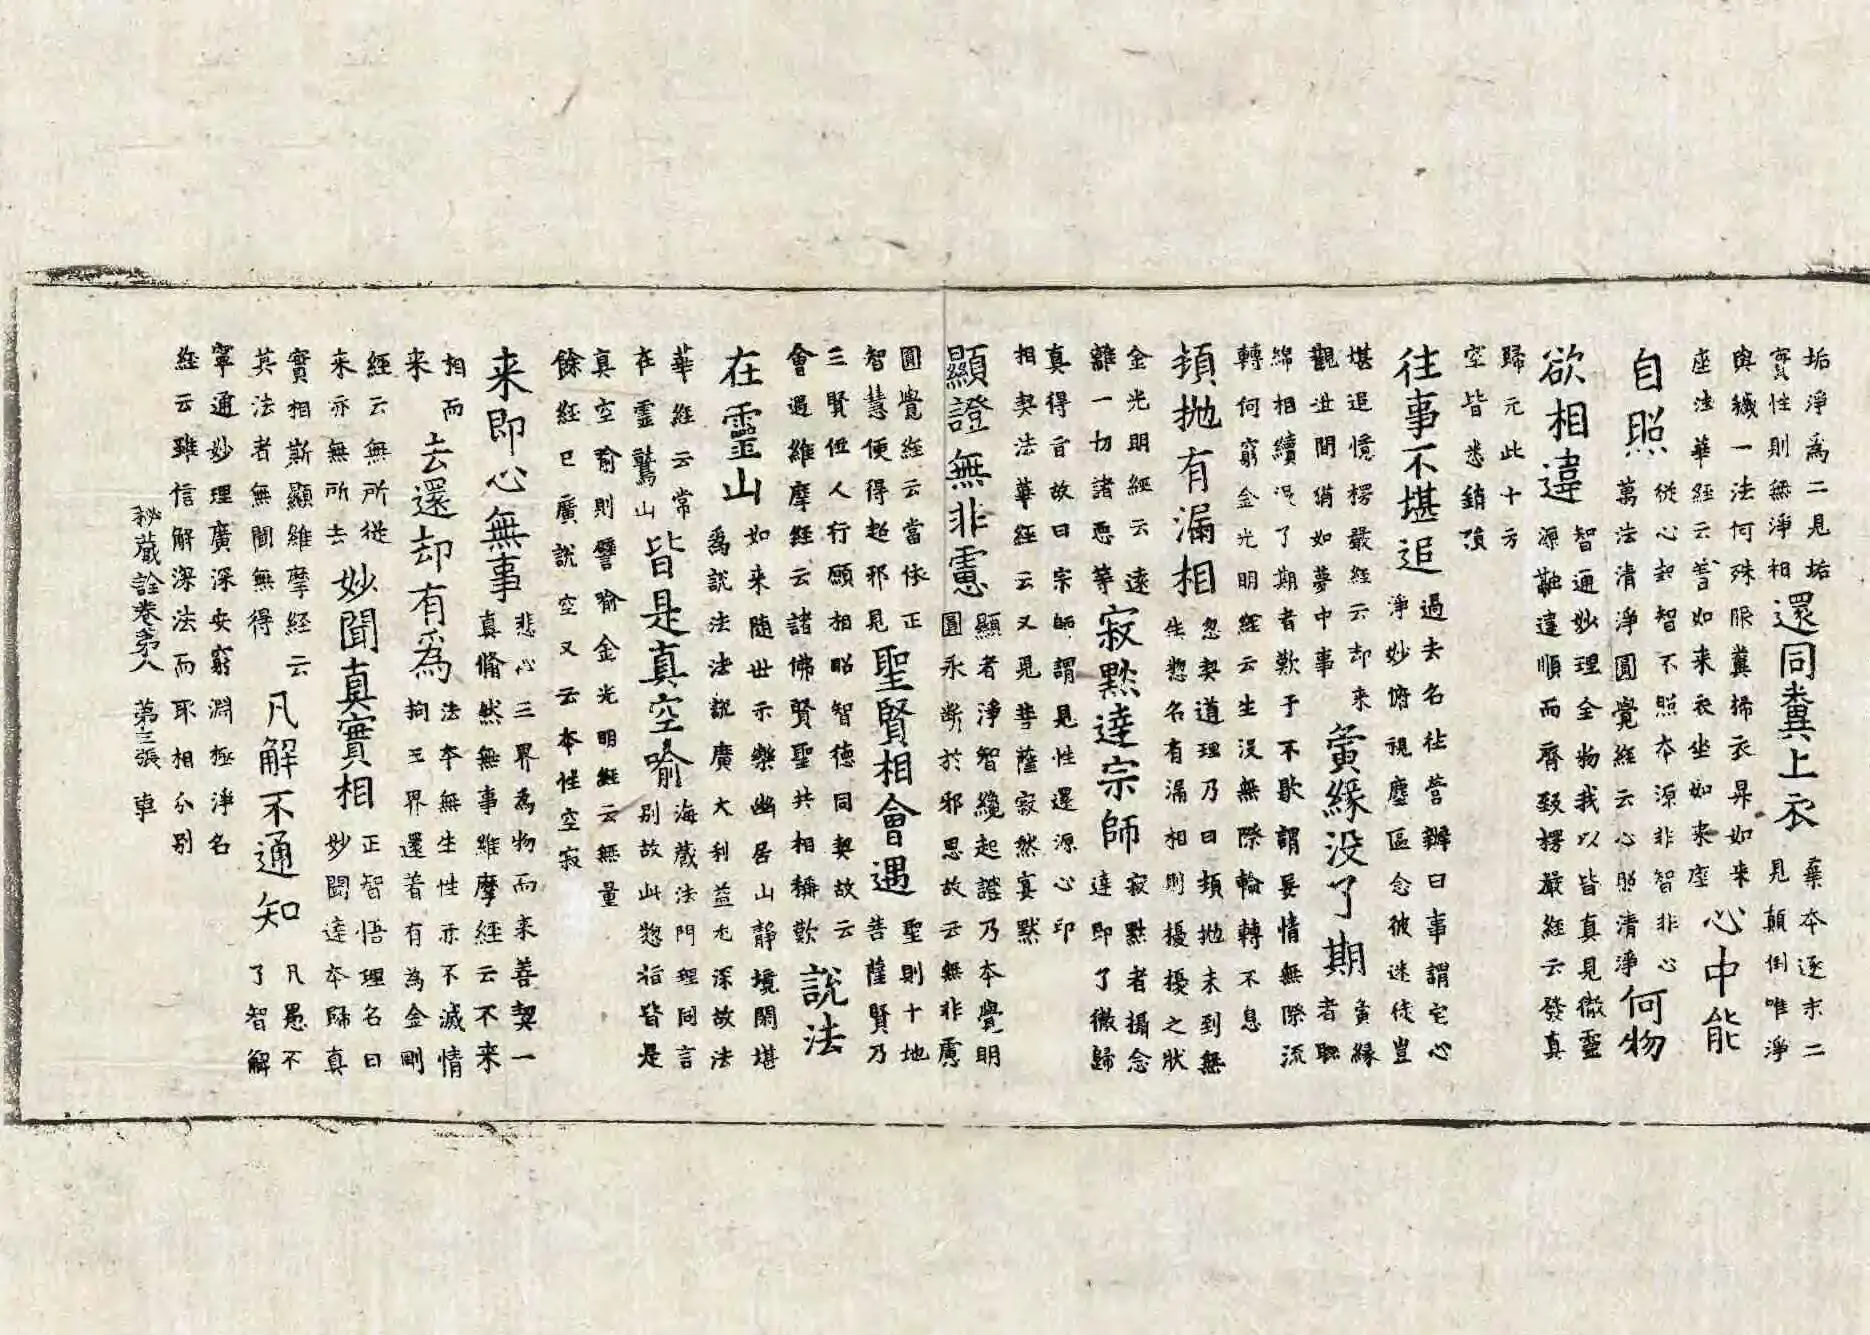 垢淨為二見垢
實性則無淨相
還同糞上衣
棄本逐末二
見顛倒唯淨
與穢一法何殊服糞掃衣昇如来
座法華經云著如来衣坐如来座
心中能
自照
從心起智不照本源非智非心
萬法清淨圓覺經云心照清淨
何物
欲相違
智通妙理全物我以皆真見徹靈
源融違順而齊致楞嚴經云發真
歸元此十方
空皆悉銷殞
往事不堪追
過去名往營辦曰事謂宅心
淨妙俯視塵區念彼迷徒豈
堪追憶楞嚴經云却来
觀世間猶如夢中事
夤緣没了期
夤緣
者聯
綿相續没了期者歎于不歇謂妄情無際流
轉何窮金光明經云生没無際輪轉不息
頓抛有漏相
忽契道理乃曰頓抛未到無
生惣名有漏相則擾擾之狀
金光明經云遠
離一切諸惡等
寂默達宗師
寂默者攝念
達即了徹歸
真得旨故曰宗師謂見性還源心印
相契法華經云又見菩薩寂然宴默
顯證無非慮
顯者淨智纔起證乃本覺明
圓永断於邪思故云無非慮
圓覺經云當依正
智慧便得超邪見
聖賢相會遇
聖則十地
菩薩賢乃
三賢位人行願相昭智德同契故云
會遇維摩經云諸佛賢聖共相稱歎
說法
在靈山
如来随世示樂幽居山静境閑堪
為說法法說廣大利益尤深故法
華經云常
在靈鷲山
皆是真空喻
海蔵法門理同言
別故此惣指皆是
真空喻則譬喻金光明經云無量
餘經已廣說空又云本性空寂
来即心無事
悲心三界為物而来善契一
真翛然無事維摩經云不来
相而
来
去還却有為
法本無生性亦不滅情
拘三界還著有為金剛
經云無所從
来亦無所去
妙聞真實相
正智悟理名曰
妙聞達本歸真
實相斯顯維摩經云
其法者無聞無得
凡解不通知
凡愚不
了智解
寧通妙理廣深安窮淵極淨名
經云雖信解深法而取相分別
秘蔵詮卷第八 第三張 車